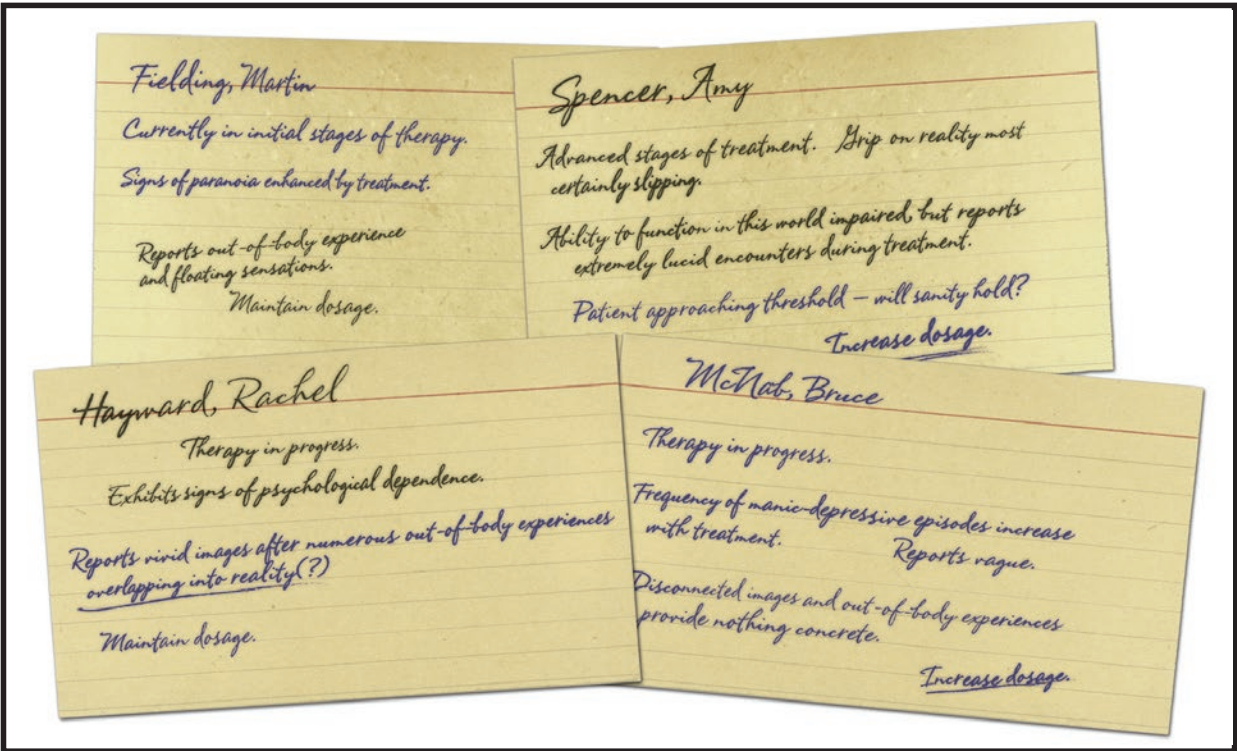 Fielding, Martin
Currently in initial stages of therapy.
Signs of paranoia enhanced by treatment.
Reports out-of-body experience
and floating sensations.
Maintain dosage.
Spencer, Amy
Advanced stages of treatment. Grip on reality most
certainly slipping.
Ability to function in this world impaired, but reports
extremely lucid encounters during treatment.
Patient approaching threshold – will sanity hold?
Increase dosage.
Hayward, Rachel
Therapy in progress.
Exhibits signs of psychological dependence.
Reports vivid images after numerous out-of-body experiences
overlapping into reality(?)
Maintain dosage.
McNab, Bruce
Therapy in progress.
Frequency of manic-depressive episodes increase
with treatment.
Reports vague.
Disconnected images and out-of-body experiences
provide nothing concrete.
Increase dosage.